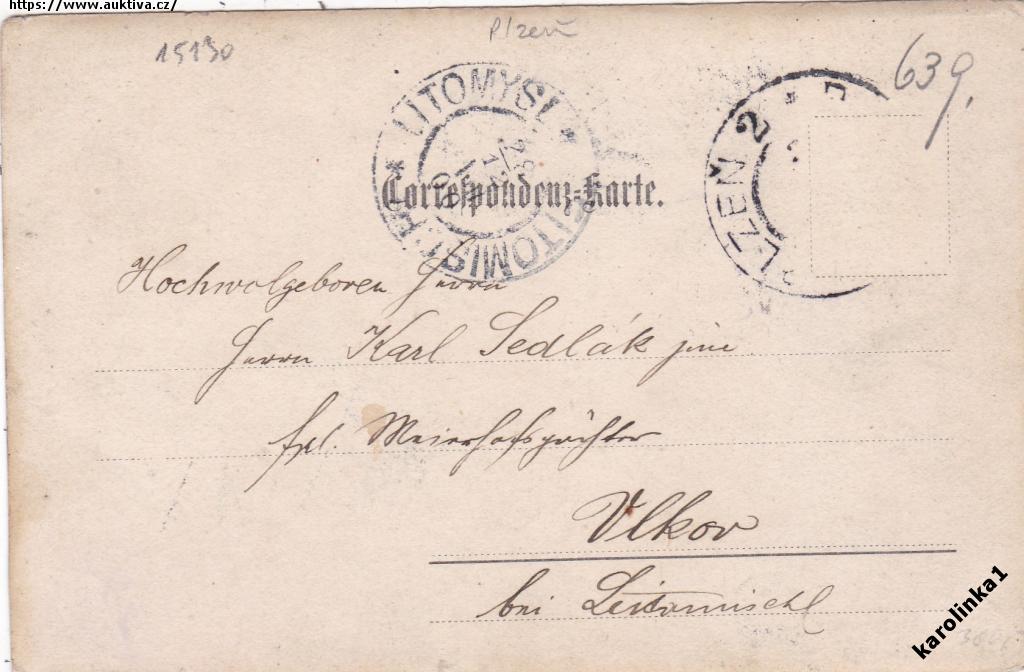 https://www.auktiva.cz/
15130
Plzeň
639.
LITOMYŠL * LEITOMISCHL *
PLZEŇ 2 *
Correspondenz-Karte.
Hochwolgeboren Herrn
Herrn Karl Sedlák jun
fzl. Meierhofspächter
Vlkov
bei Leitomischl
karolinka1